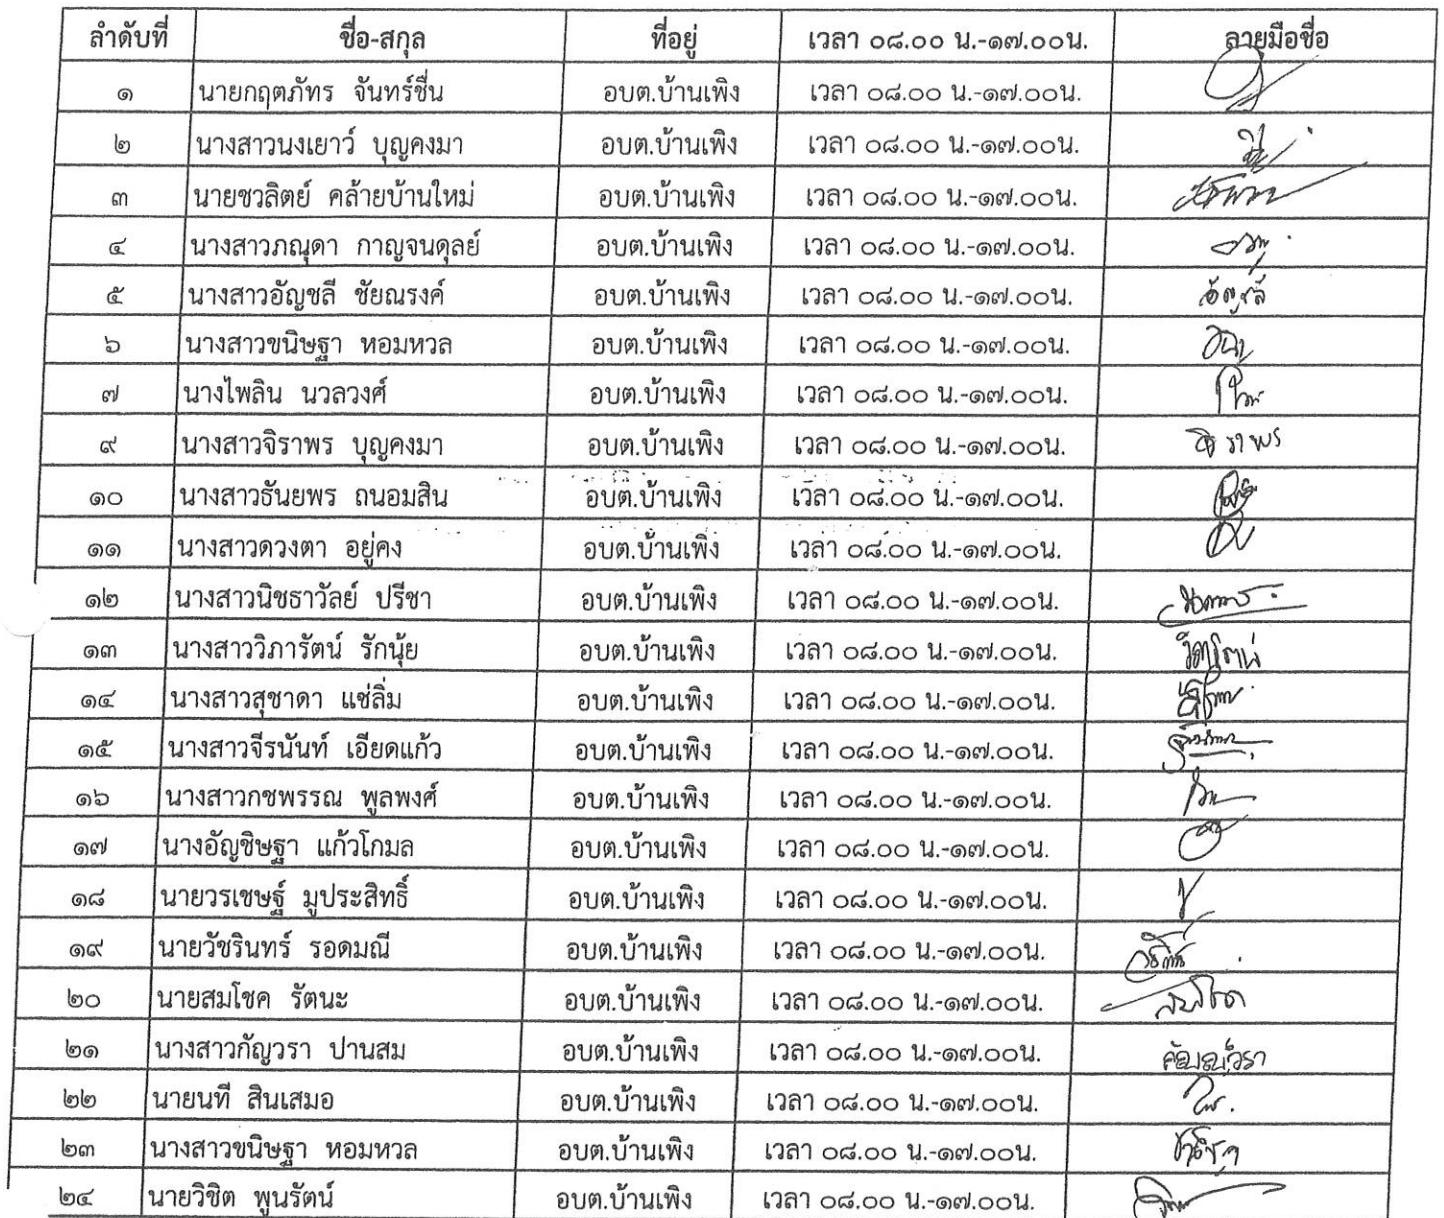 ลำดับที่ ชื่อ-สกุล ที่อยู่ เวลา ๐๘.๐๐ น.-๑๗.๐๐น. ลายมือชื่อ
๑ นายกฤตภัทร จันทร์ชื่น อบต.บ้านเพิง เวลา ๐๘.๐๐ น.-๑๗.๐๐น.
๒ นางสาวนงเยาว์ บุญคงมา อบต.บ้านเพิง เวลา ๐๘.๐๐ น.-๑๗.๐๐น.
๓ นายชวลิตย์ คล้ายบ้านใหม่ อบต.บ้านเพิง เวลา ๐๘.๐๐ น.-๑๗.๐๐น.
๔ นางสาวภณุดา กาญจนดุลย์ อบต.บ้านเพิง เวลา ๐๘.๐๐ น.-๑๗.๐๐น.
๕ นางสาวอัญชลี ชัยณรงค์ อบต.บ้านเพิง เวลา ๐๘.๐๐ น.-๑๗.๐๐น. อัญชลี
๖ นางสาวขนิษฐา หอมหวล อบต.บ้านเพิง เวลา ๐๘.๐๐ น.-๑๗.๐๐น.
๗ นางไพลิน นวลวงศ์ อบต.บ้านเพิง เวลา ๐๘.๐๐ น.-๑๗.๐๐น.
๙ นางสาวจิราพร บุญคงมา อบต.บ้านเพิง เวลา ๐๘.๐๐ น.-๑๗.๐๐น. จิราพร
๑๐ นางสาวธันยพร ถนอมสิน อบต.บ้านเพิง เวลา ๐๘.๐๐ น.-๑๗.๐๐น.
๑๑ นางสาวดวงตา อยู่คง อบต.บ้านเพิง เวลา ๐๘.๐๐ น.-๑๗.๐๐น.
๑๒ นางสาวนิชธาวัลย์ ปรีชา อบต.บ้านเพิง เวลา ๐๘.๐๐ น.-๑๗.๐๐น.
๑๓ นางสาววิภารัตน์ รักนุ้ย อบต.บ้านเพิง เวลา ๐๘.๐๐ น.-๑๗.๐๐น. วิภารัตน์
๑๔ นางสาวสุชาดา แซ่ลิ่ม อบต.บ้านเพิง เวลา ๐๘.๐๐ น.-๑๗.๐๐น.
๑๕ นางสาวจีรนันท์ เอียดแก้ว อบต.บ้านเพิง เวลา ๐๘.๐๐ น.-๑๗.๐๐น.
๑๖ นางสาวกชพรรณ พูลพงศ์ อบต.บ้านเพิง เวลา ๐๘.๐๐ น.-๑๗.๐๐น.
๑๗ นางอัญชิษฐา แก้วโกมล อบต.บ้านเพิง เวลา ๐๘.๐๐ น.-๑๗.๐๐น.
๑๘ นายวรเชษฐ์ มูประสิทธิ์ อบต.บ้านเพิง เวลา ๐๘.๐๐ น.-๑๗.๐๐น.
๑๙ นายวัชรินทร์ รอดมณี อบต.บ้านเพิง เวลา ๐๘.๐๐ น.-๑๗.๐๐น.
๒๐ นายสมโชค รัตนะ อบต.บ้านเพิง เวลา ๐๘.๐๐ น.-๑๗.๐๐น. สมโชค
๒๑ นางสาวกัญวรา ปานสม อบต.บ้านเพิง เวลา ๐๘.๐๐ น.-๑๗.๐๐น.
๒๒ นายนที สินเสมอ อบต.บ้านเพิง เวลา ๐๘.๐๐ น.-๑๗.๐๐น.
๒๓ นางสาวขนิษฐา หอมหวล อบต.บ้านเพิง เวลา ๐๘.๐๐ น.-๑๗.๐๐น.
๒๔ นายวิชิต พูนรัตน์ อบต.บ้านเพิง เวลา ๐๘.๐๐ น.-๑๗.๐๐น.